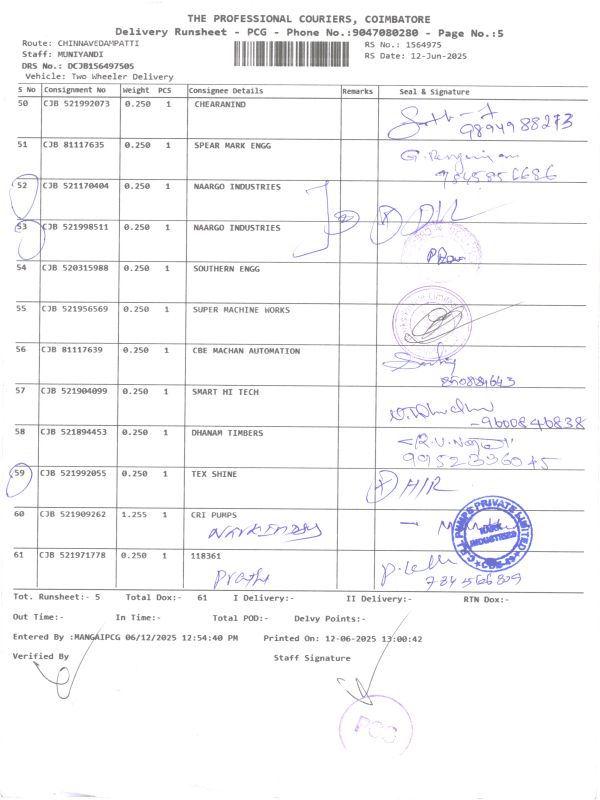 THE PROFESSIONAL COURIERS, COIMBATORE
Delivery Runsheet - PCG - Phone No.:9047080280 - Page No.:5
Route: CHINNAVEDAMPATTI
RS No.: 1564975
Staff: MUNIYANDI
RS Date: 12-Jun-2025
DRS No.: DCJB156497505
Vehicle: Two Wheeler Delivery
S No Consignment No Weight PCS Consignee Details Remarks Seal & Signature
50 CJB 521992073 0.250 1 CHEARANIND
9894988273
51 CJB 81117635 0.250 1 SPEAR MARK ENGG
52 CJB 521170404 0.250 1 NAARGO INDUSTRIES
D/L
53 CJB 521998511 0.250 1 NAARGO INDUSTRIES
54 CJB 520315988 0.250 1 SOUTHERN ENGG
55 CJB 521956569 0.250 1 SUPER MACHINE WORKS
56 CJB 81117639 0.250 1 CBE MACHAN AUTOMATION
57 CJB 521904099 0.250 1 SMART HI TECH
-9600840838
58 CJB 521894453 0.250 1 DHANAM TIMBERS
9952336045
59 CJB 521992055 0.250 1 TEX SHINE
H/R
60 CJB 521909262 1.255 1 CRI PUMPS
C.R.I. PUMPS PRIVATE LIMITED
INDUSTRIES
61 CJB 521971778 0.250 1 118361
Tot. Runsheet:- 5 Total Dox:- 61 I Delivery:- II Delivery:- RTN Dox:-
Out Time:- In Time:- Total POD:- Delvy Points:-
Entered By :MANGAIPCG 06/12/2025 12:54:40 PM Printed On: 12-06-2025 13:00:42
Verified By Staff Signature
PCG